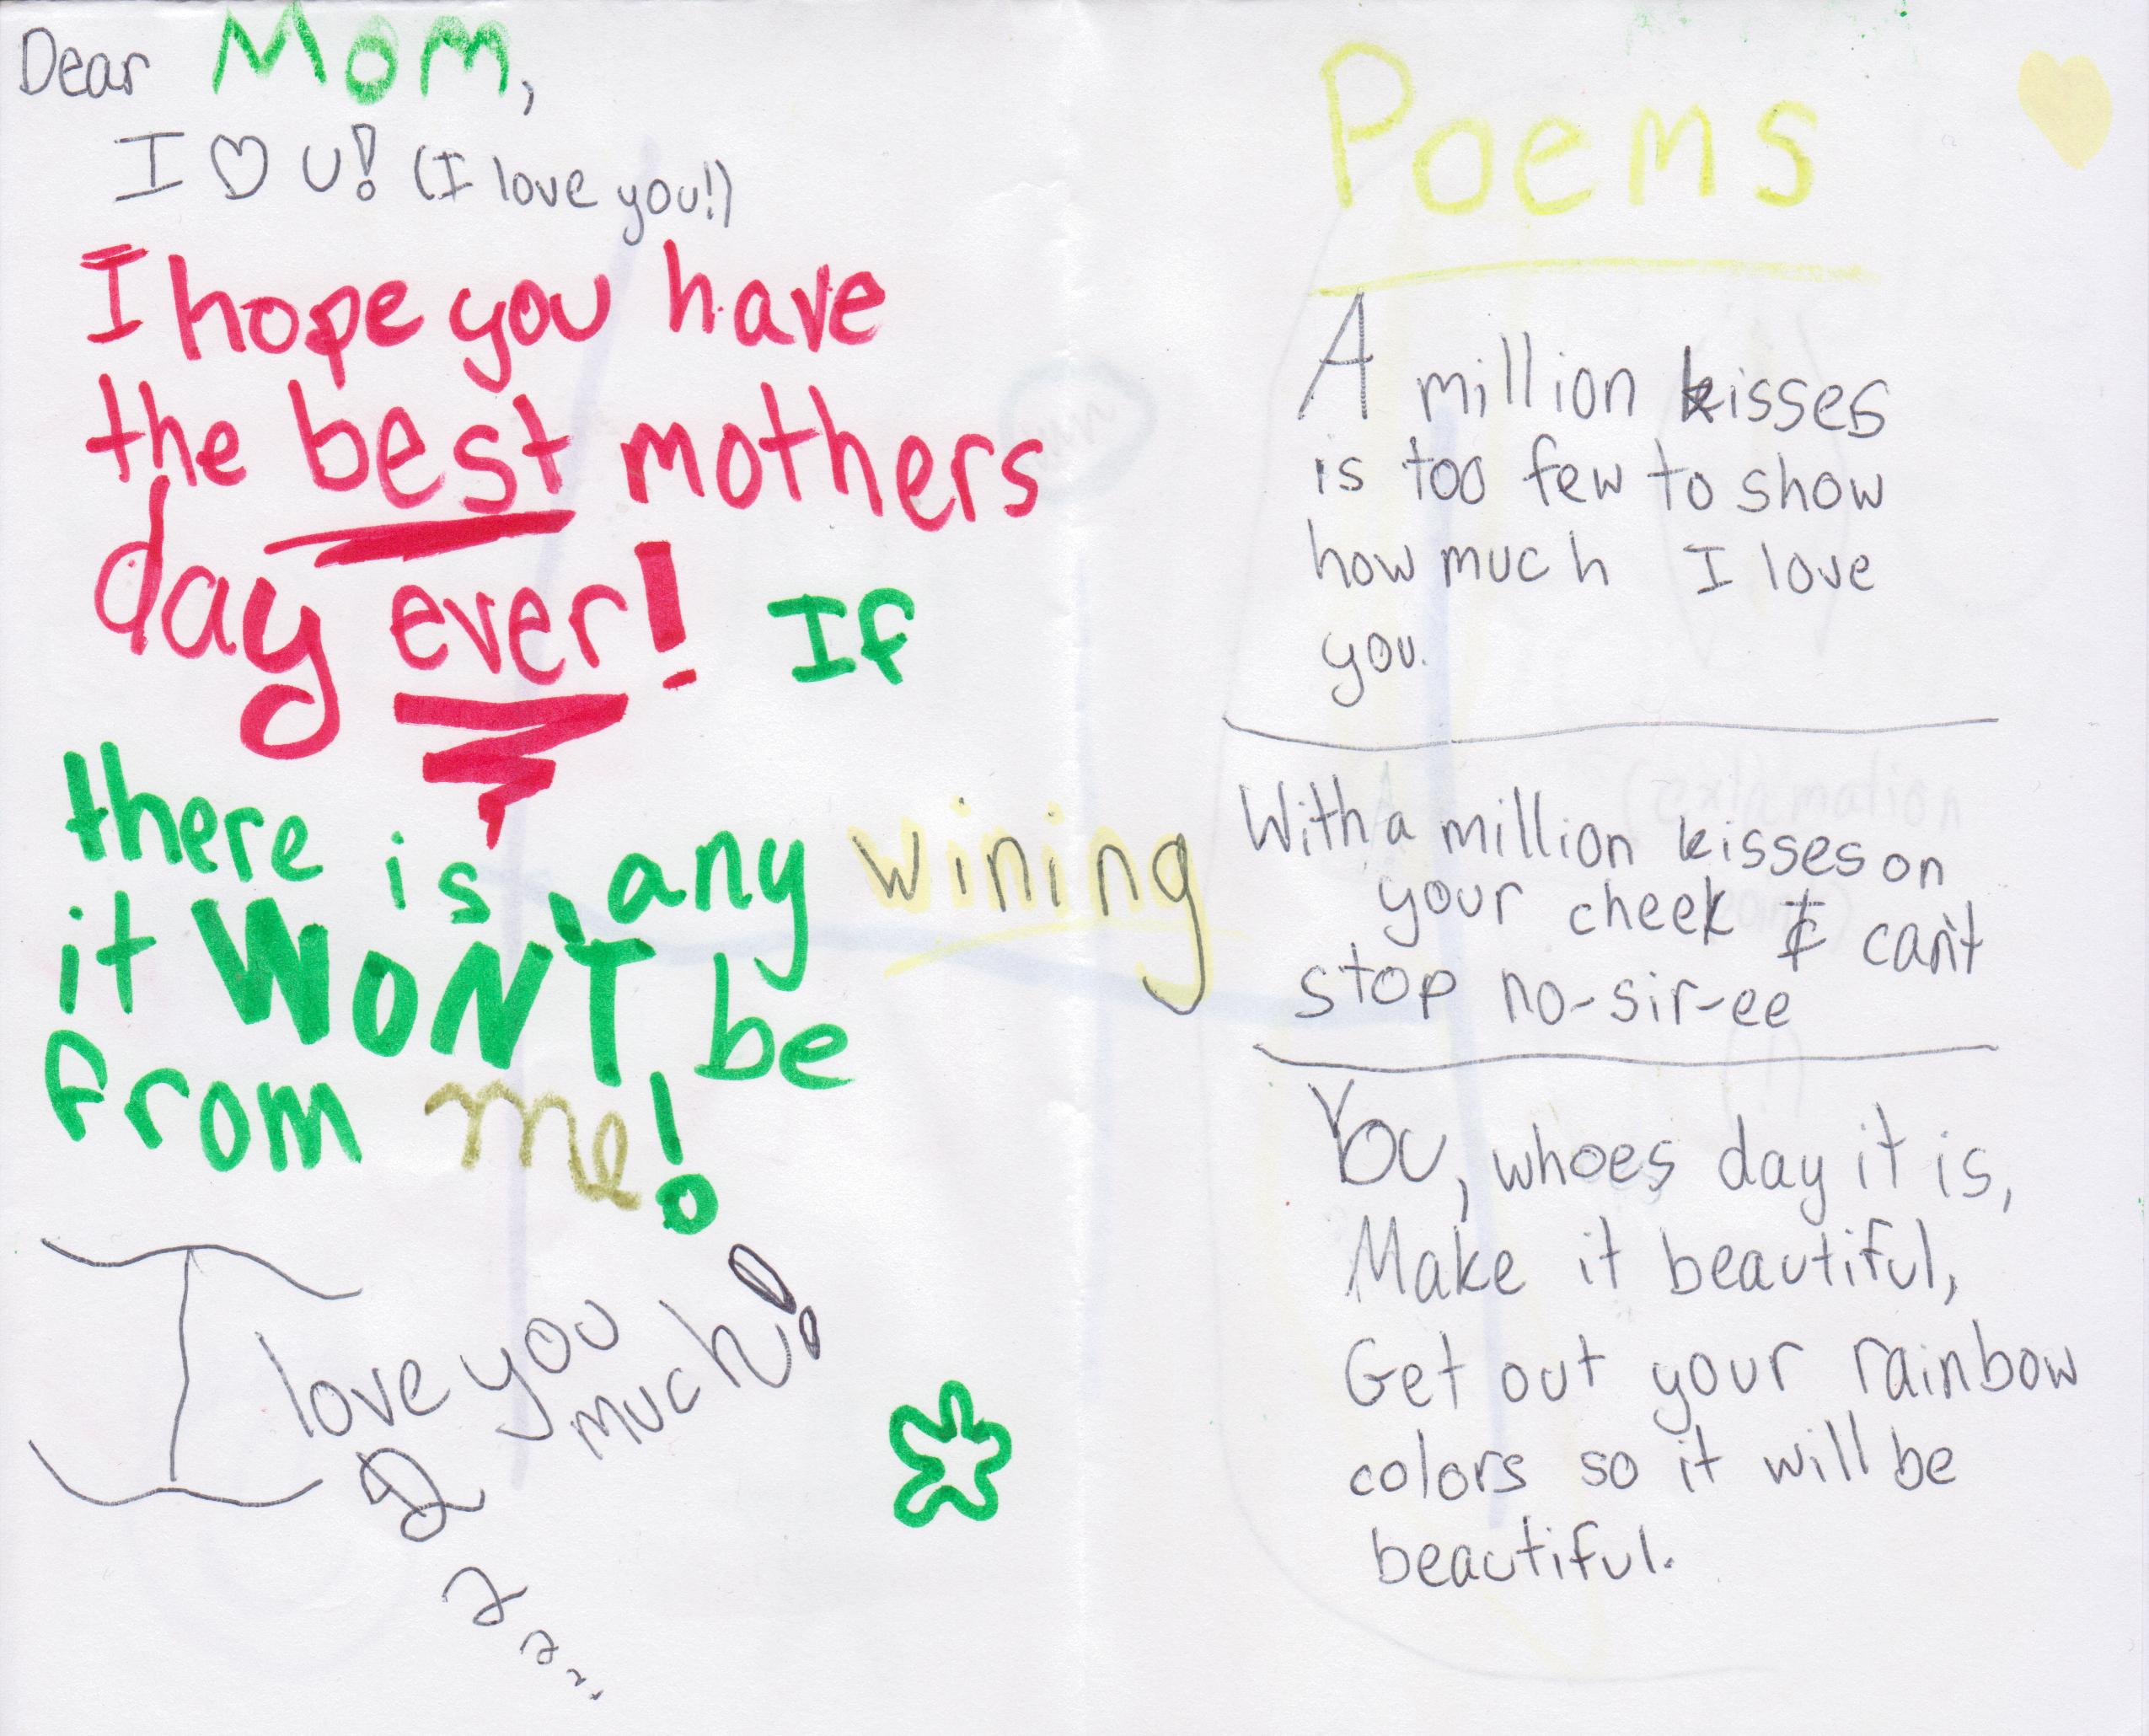 Dear Mom,
I ♡ U! (I love you!)
I hope you have
the best mothers
day ever! If
there is, any wining
it WON'T be
from me!
I love you
2 much!
2
2
2
Poems
A million kisses
is too few to show
how much I love
you.
With a million kisses on
your cheek I can't
stop no-sir-ee
You, whoes day it is,
Make it beautiful,
Get out your rainbow
colors so it will be
beautiful.